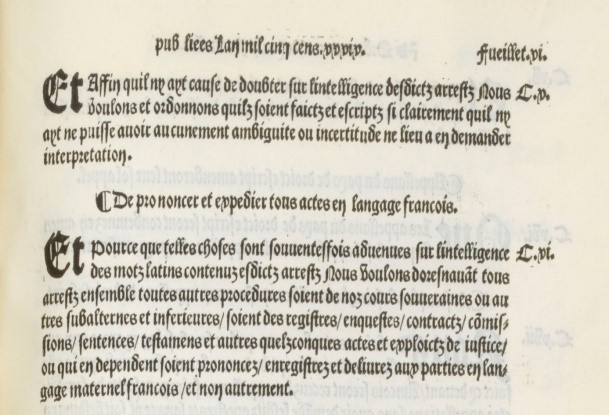 pub liees Lan mil cinq cens.xxxix. Fueillet.vi.
Et Affin quil ny ayt cause de doubter sur lintelligence desdictz arrestz Nous C.v.
voulons et ordonnons quilz soient faictz et escriptz si clairement quil ny
ayt ne puisse avoir aucunement ambiguite ou incertitude ne lieu a en demander
interpretation.
¶ De pro noncer et expedier tous actes en langage francois.
Et Pource que telles choses sont souventesfois advenues sur lintelligence C.vi.
des motz latins contenuz esdictz arrestz Nous voulons doresnavāt tous
arrestz ensemble toutes autres procedures soient de noz cours souveraines ou au
tres subalternes et inferieures/ soient des registres/ enquestes/ contractz/ cōmis⸗
sions/ sentences/ testamens et autres quelzconques actes et exploictz de iustice/
ou qui en dependent soient prononcez/ enregistrez et delivrez aux parties en lan⸗
gage maternel francois/ et non autrement.